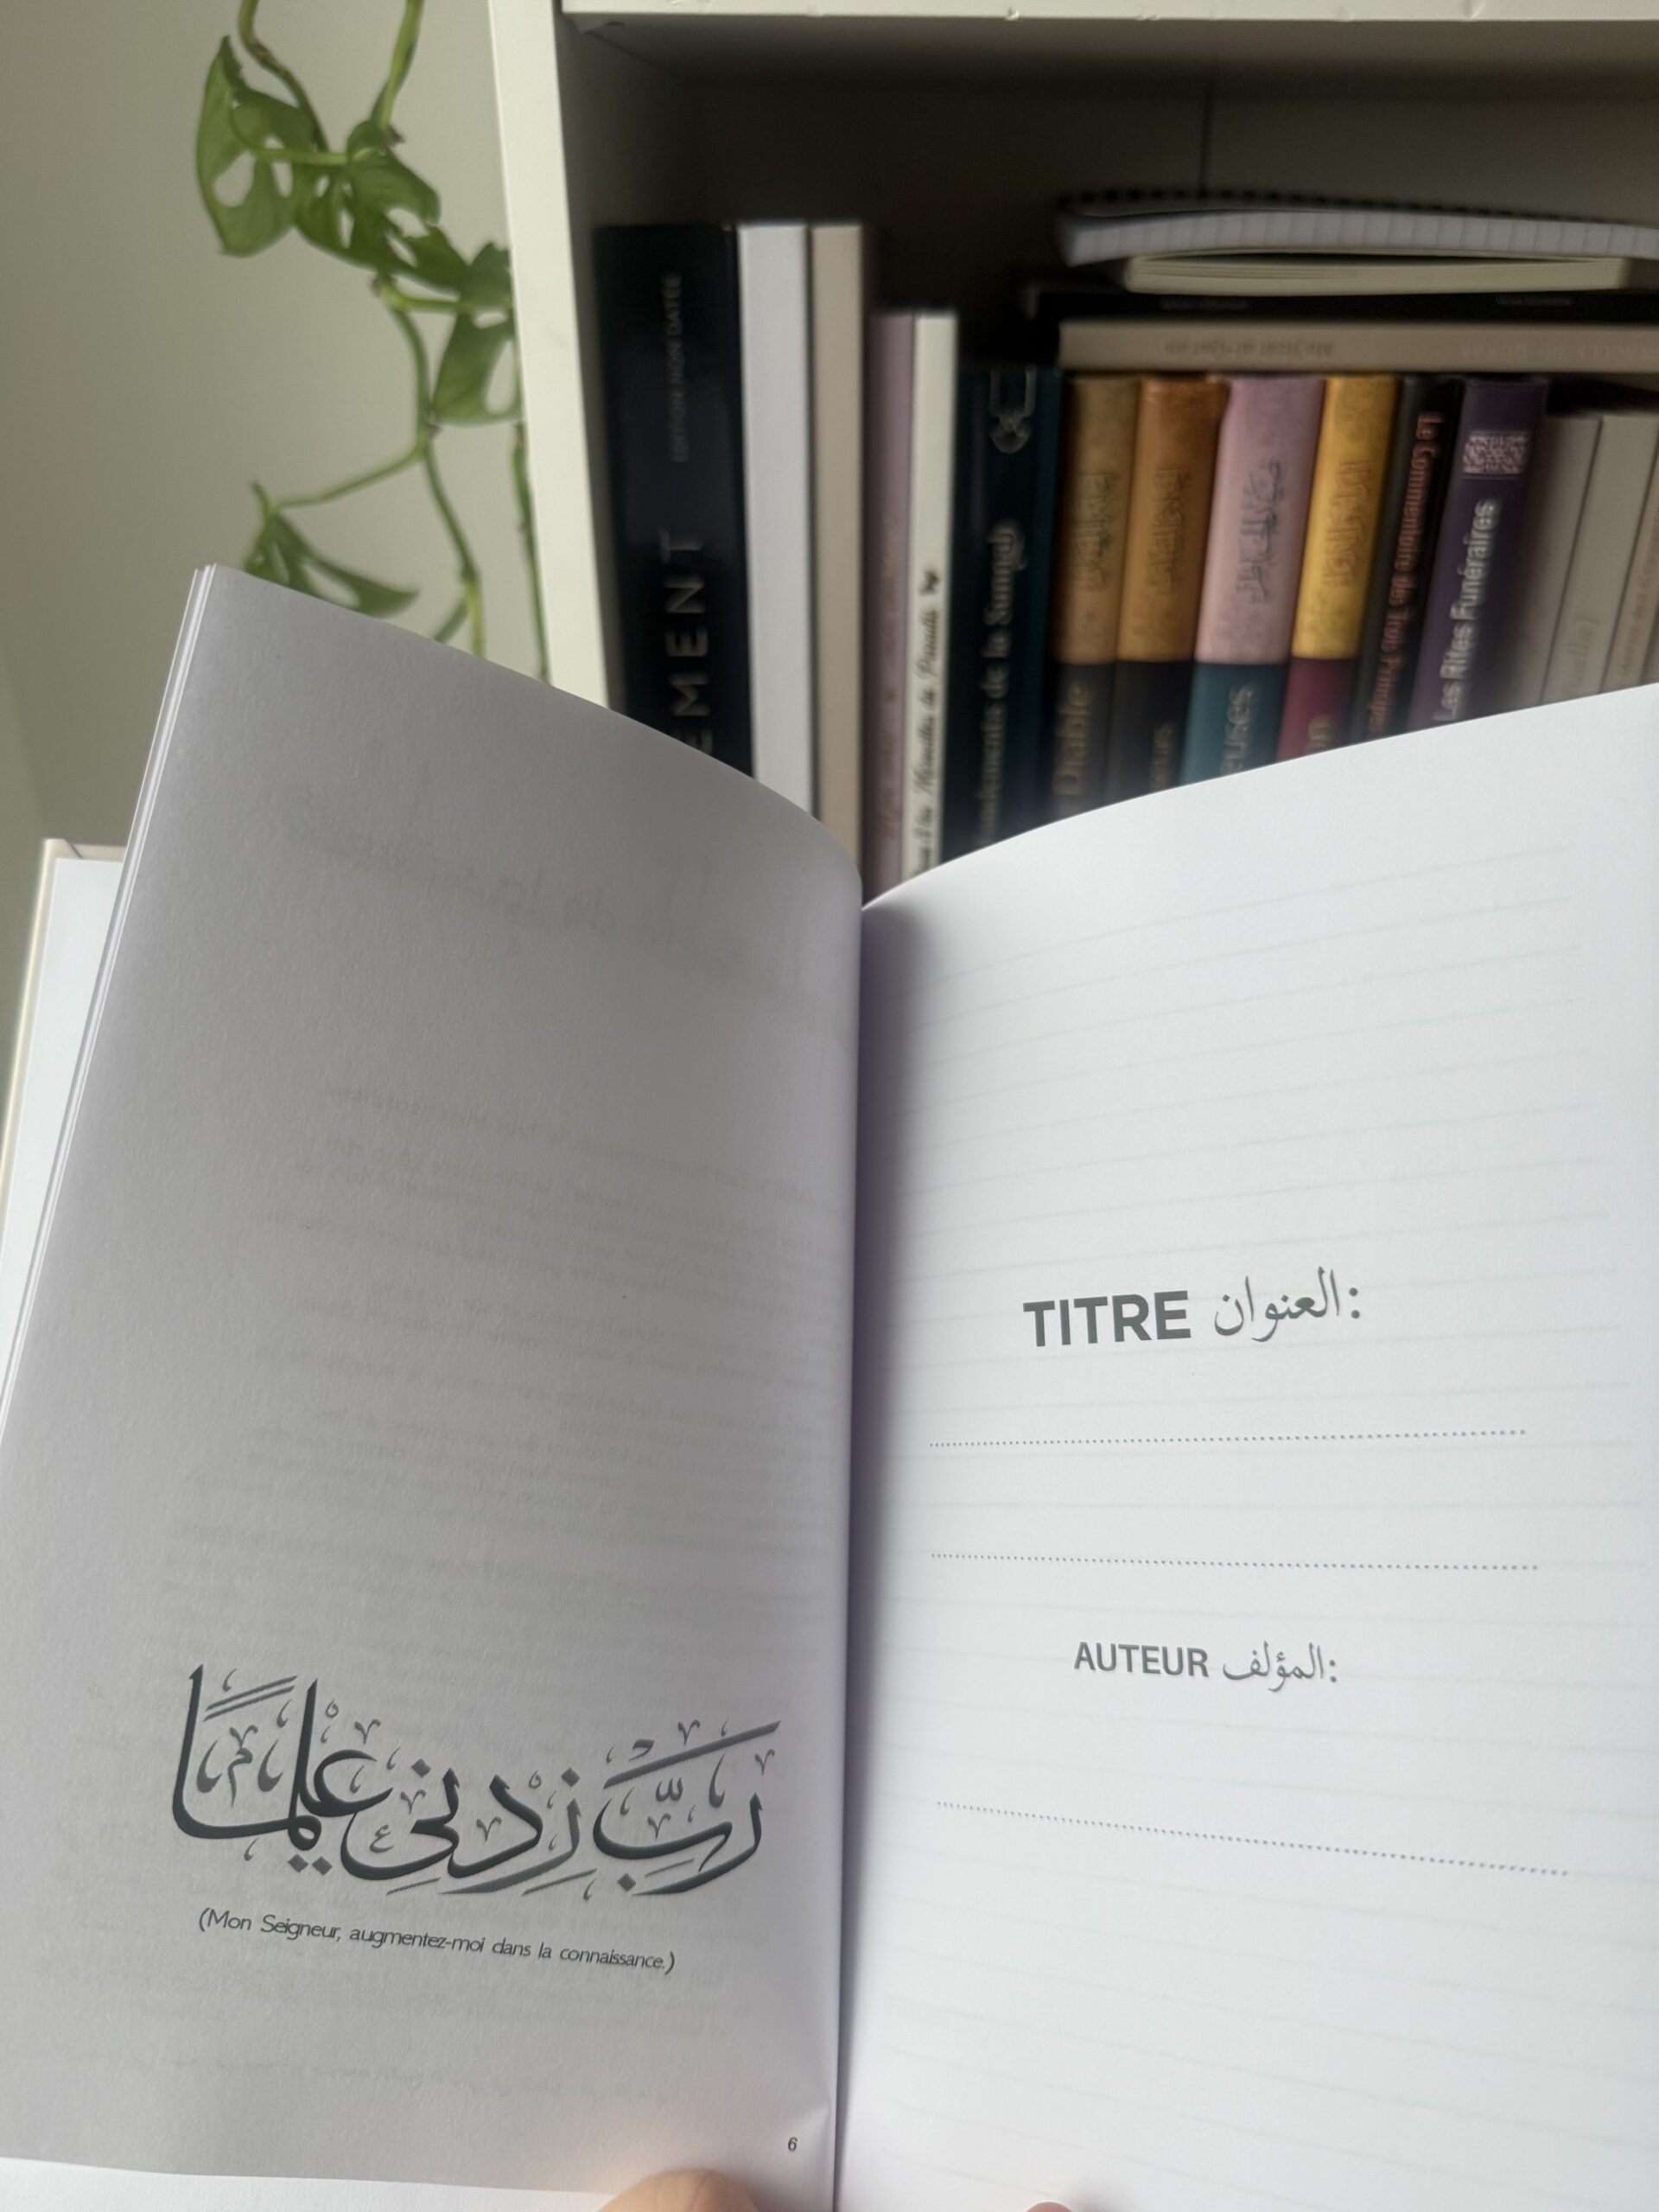 EDITION NON DATÉE
EMENT
ndements de la Sunnah
Diable
Le Commentaire des Trois Principes
Les Rites Funéraires
رَبِّ زِدْنِي عِلْمًا
(Mon Seigneur, augmentez-moi dans la connaissance.)
6
TITRE العنوان:
AUTEUR المؤلف: